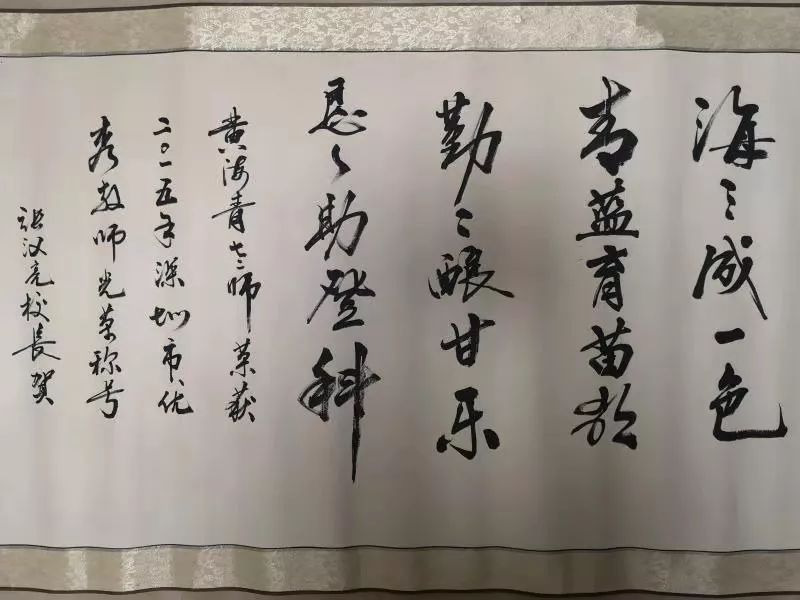 海之成一色
青蓝育苗
勤々酿甘乐
恳々助登科
黄海青老师荣获
二〇一五年深圳市优
秀教师光荣称号
张汉亮校长贺